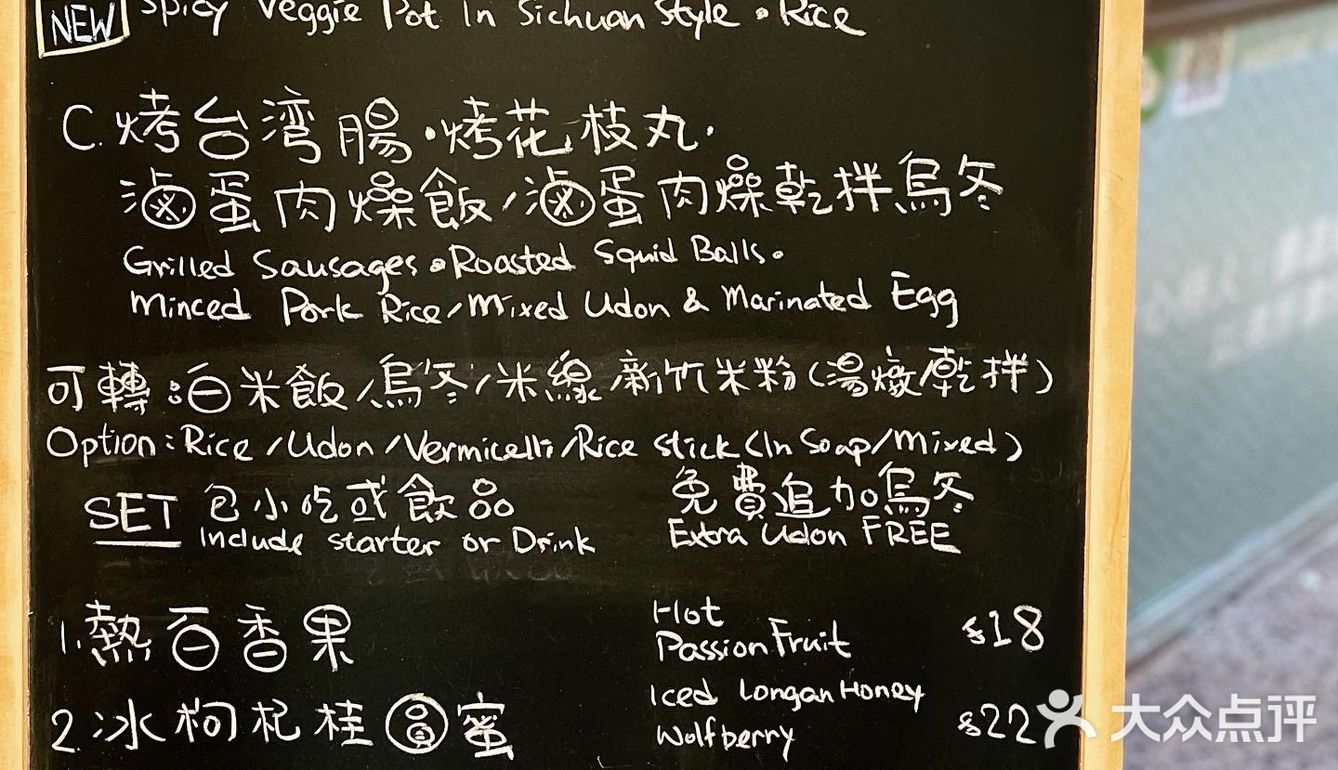 NEW Spicy Veggie Pot In Sichuan Style • Rice
C. 烤台湾腸 • 烤花枝丸 •
滷蛋肉燥飯/滷蛋肉燥乾拌烏冬
Grilled Sausages • Roasted Squid Balls •
Minced Pork Rice/Mixed Udon & Marinated Egg
可轉:白米飯/烏冬/米線/新竹米粉(湯燉/乾拌)
Option: Rice/Udon/Vermicelli/Rice stick (In Soap/Mixed)
SET 包小吃或飲品
Include starter or Drink
免費追加烏冬
Extra Udon FREE
1. 熱百香果 Hot Passion Fruit $18
2. 冰枸杞桂圓蜜 Iced Longan Honey Wolfberry $22
大众点评